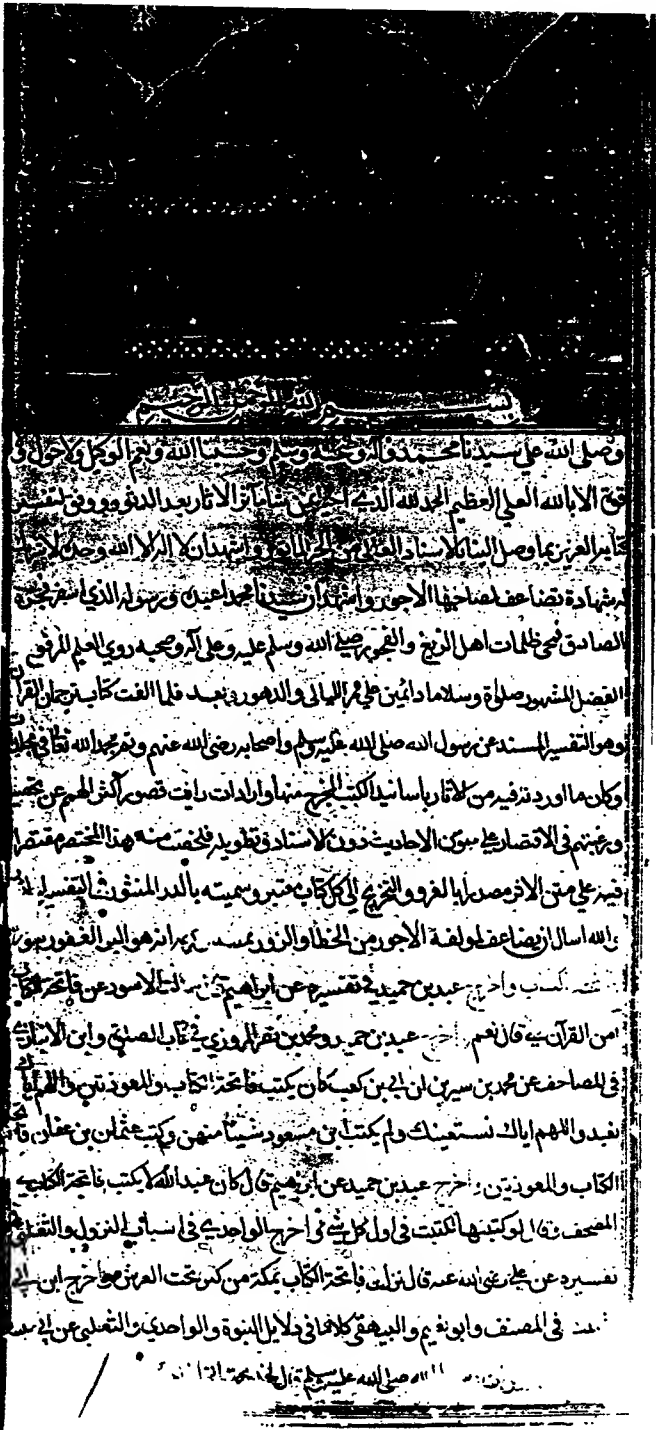 بسم الله الرحمن الرحيم
وصلى الله على سيدنا محمد وآله وصحبه وسلم وحسبنا الله ونعم الوكيل ولا حول ولا
قوة الا بالله العلي العظيم الحمد لله الذي احيا بمن شا مآثر الاثار بعد الدثور ووفق لتفسير
كتابه العزيز بما وصل الينا بالاسناد العالي من الخبر الماثور واشهد ان لا اله الا الله وحده لا شريك
له شهادة تضاعف لصاحبها الاجور واشهد ان سيدنا محمدا عبده ورسوله الذي اسفر فجره
الصادق فمحى ظلمات اهل الزيغ والفجور صلى الله وسلم عليه وعلى آله وصحبه ذوي العلم المرفوع
الفضل المشهور صلوة وسلاما دائمين على ممر الليالي والدهور وبعد فلما الفت كتاب ترجمان القرآن
وهو التفسير المسند عن رسول الله صلى الله عليه وسلم واصحابه رضي الله عنهم وتم بحمد الله تعالى في مجلدات
وكان ما اوردته فيه من الاثار باسانيد الكتب المخرج منها واردات رايت قصور اكثر الهمم عن تحصيله
ورغبتهم في الاقتصار على متون الاحاديث دون الاسناد وتطويله فلخصت منه هذا المختصر مقتصرا
فيه على متن الاثر مصدرا بالعزو والتخريج الى كل كتاب معتبر وسميته بالدر المنثور في التفسير
والله اسال ان يضاعف لمولفه الاجور من الخطا والزور بمنه انه هو البر الغفور
واخرج عبد بن حميد في تفسيره عن ابراهيم قال سالت الاسود عن فاتحة الكتاب
امن القرآن هي قال نعم واخرج عبد بن حميد ومحمد بن نصر المروزي في كتاب الصلوة وابن الانباري
في المصاحف عن محمد بن سيرين ان ابي بن كعب كان يكتب فاتحة الكتاب والمعوذتين واللهم اياك
نعبد واللهم اياك نستعينك ولم يكتب ابن مسعود شيئا منهن وكتب عثمان بن عفان فاتحة
الكتاب والمعوذتين واخرج عبد بن حميد عن ابراهيم قال كان عبد الله لا يكتب فاتحة الكتاب في
المصحف وقال لو كتبتها لكتبت في اول كل شيء واخرج الواحدي في اسباب النزول والثعلبي في
تفسيره عن علي رضي الله عنه قال نزلت فاتحة الكتاب بمكة من كنز تحت العرش واخرج ابن ابي
في المصنف وابو نعيم والبيهقي كلاهما في دلايل النبوة والواحدي والثعلبي عن ابي ميسرة
صلى الله عليه وسلم